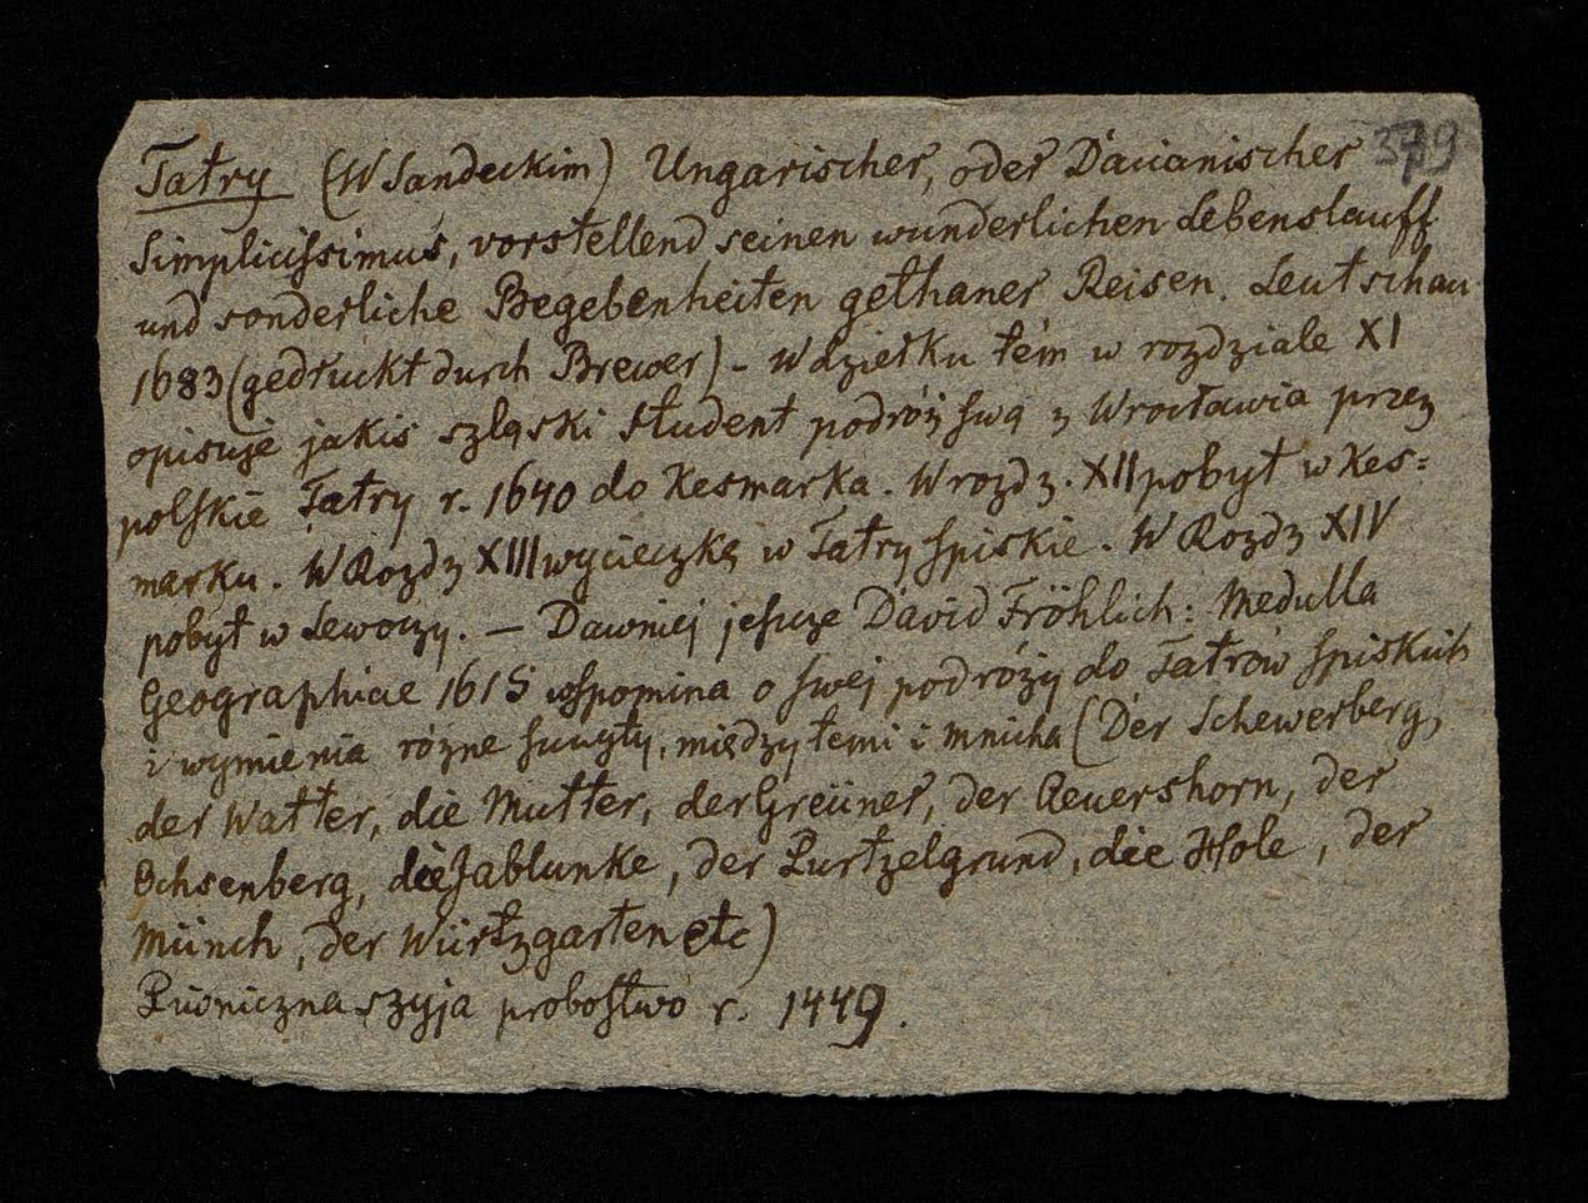 Tatry (W Sandeckim) Ungarischer, oder Dacianischer 379
Simplicissimus, vorstellend seinen wunderlichen Lebenslauff
und sonderliche Begebenheiten gethaner Reisen. Leutschau
1683 (gedruckt durch Brewer) - W dziełku tém w rozdziale XI
opisuje jakiś szląski student podróż swą z Wrocławia przez
polskie Tatry r. 1640 do Kesmarka. W rozdz. XII pobyt w Kes=
marku. W Rozdz XIII wycieczkę w Tatry spiskie. W Rozdz XIV
pobyt w Lewoczy. — Dawniej jescze David Fröhlich: Medulla
Geographiae 1615 wspomina o swej podróży do Tatrów spiskich
i wymienia rózne sczyty, między temi i mnicha (Der Schewerberg,
der Watter, die Mutter, der Greüner, der Reuershorn, der
Ochsenberg, die Jablunke, der Purtzelgrund, die Hole, der
Münch, der Würtzgarten etc)
Piwniczna szyja probostwo r. 1449.